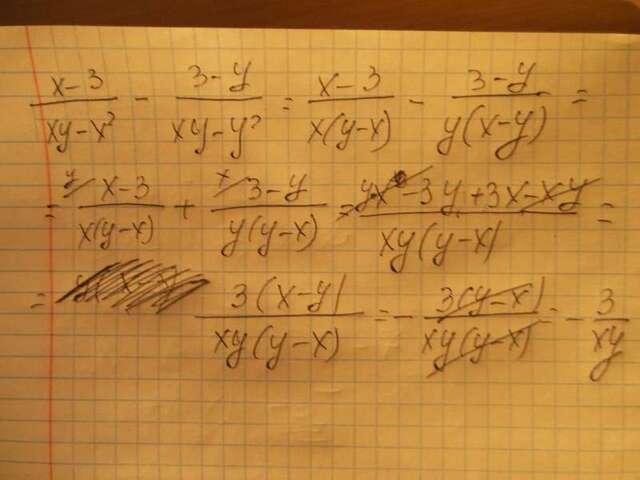 x-3/xy-x² - 3-y/xy-y² = x-3/x(y-x) - 3-y/y(x-y) =
= y/ x-3/x(y-x) + x/ 3-y/y(y-x) = yx-3y+3x-xy/xy(y-x) =
= 3(x-y)/xy(y-x) = - 3(y-x)/xy(y-x) = - 3/xy